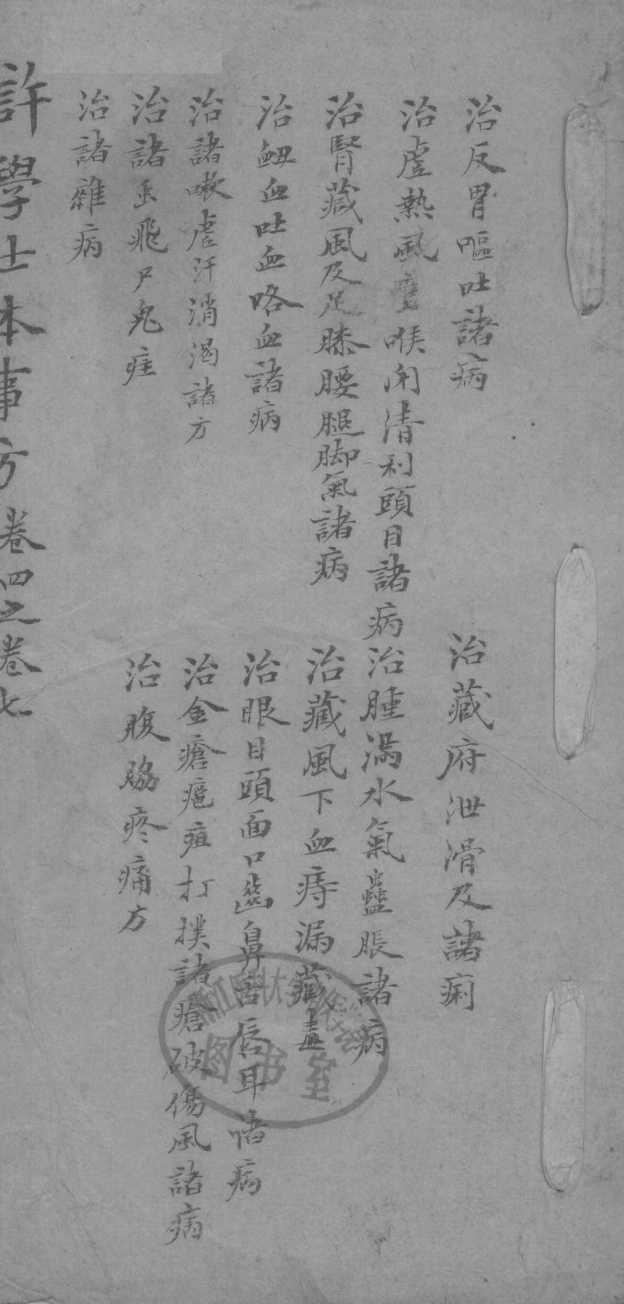 治反胃嘔吐諸病
治藏府泄滑及諸痢
治虛熱風壅喉閉清利頭目諸病
治腫滿水氣蠱脹諸病
治腎藏風及足膝腰腿脚氣諸病
治藏風下血痔漏藏毒
治衄血吐血咯血諸病
治眼目頭面口齒鼻舌唇耳諸病
治諸嗽虛汗消渴諸方
治金瘡瘛疽打撲諸瘡破傷風諸病
治諸虫飛尸鬼疰
治腹脇疼痛方
治諸雜病
許學士本事方卷四之卷七
圖书室